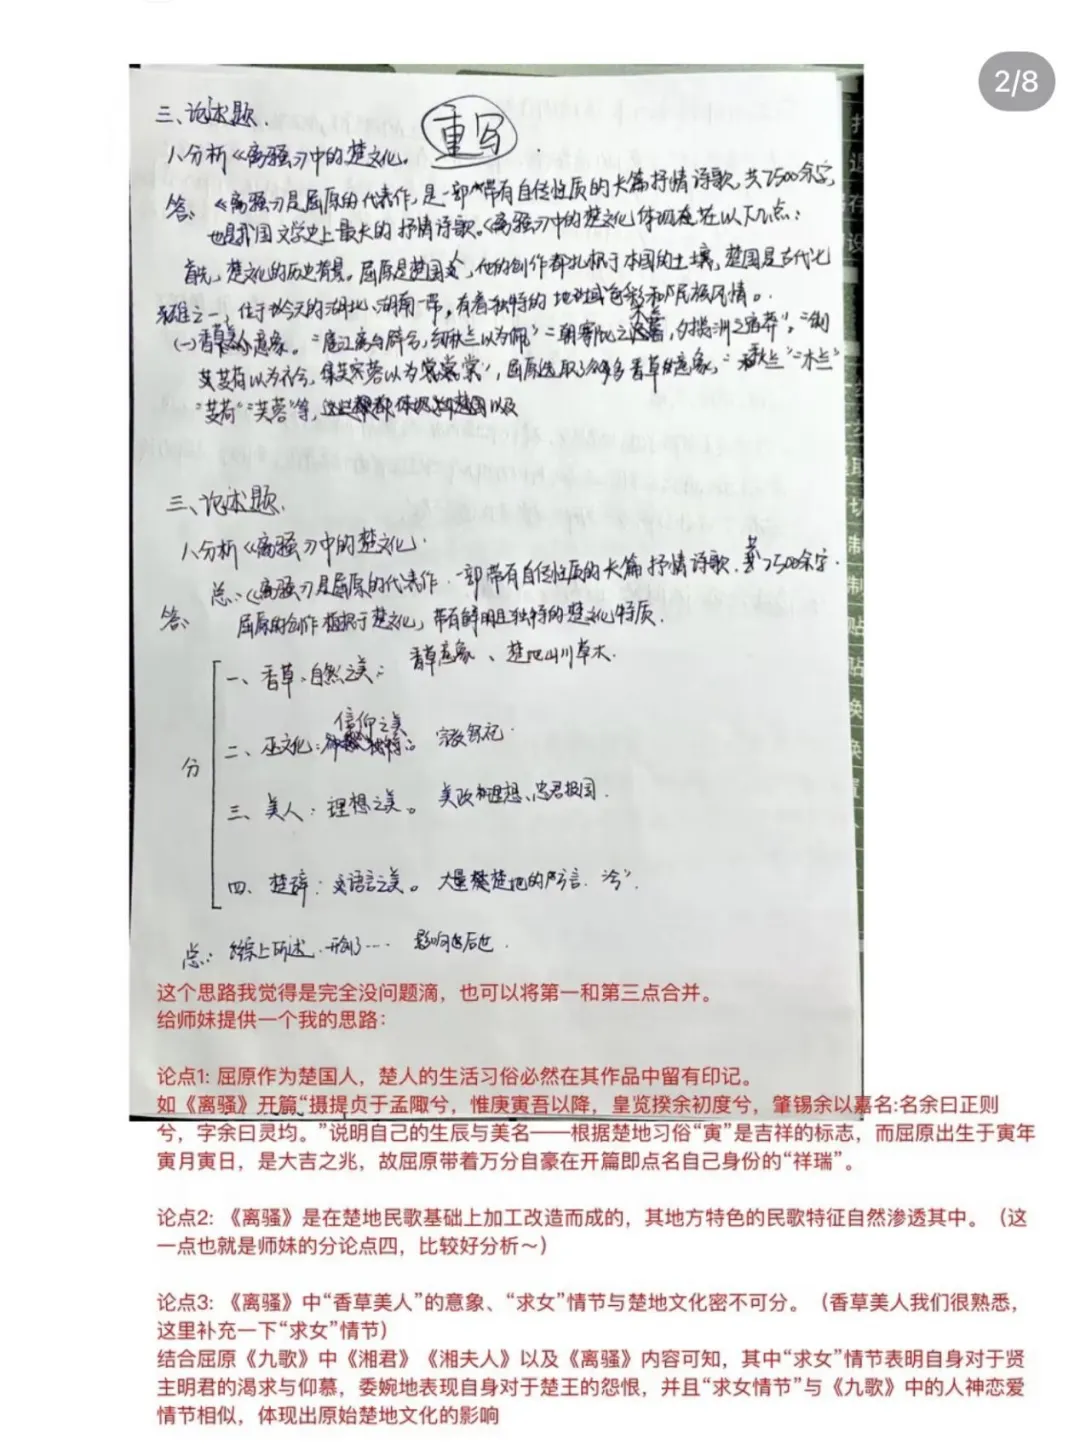 2/8
三、论述题.
重写
1、分析《离骚》中的楚文化。
答: 《离骚》是屈原的代表作,是一部带有自传性质的长篇抒情诗歌,共2500余字,
也是我国文学史上最长的抒情诗歌。《离骚》中的楚文化体现在以下几点:
首先,楚文化的历史背景。屈原是楚国人,他的创作都扎根于本国的土壤,楚国是古代七
雄之一,位于今天的湖北、湖南一带,有着独特的地域色彩和民族风情。
(一)香草意象。“扈江离与辟芷,纫秋兰以为佩”“朝搴阰之木兰,夕揽洲之宿莽”。“制
芰荷以为衣兮,集芙蓉以为裳”,屈原选取了众多香草意象,“秋兰”“木兰”
“芰荷”“芙蓉”等,这些都体现楚国以及
三、论述题.
1、分析《离骚》中的楚文化.
答: 总:《离骚》是屈原的代表作.一部带有自传性质的长篇抒情诗歌.共2500余字.
屈原的创作植根于楚文化,带有鲜明且独特的楚文化特质.
分
一、香草:自然之美: 香草意象、楚地山川草木.
二、巫文化:信仰之美 宗教祭祀.
三、美人:理想之美。 美政和理想、忠君报国.
四、楚辞:语言之美。 大量楚地的方言.“兮”.
总: 综上所述.形成了… 影响后世.
这个思路我觉得是完全没问题滴，也可以将第一和第三点合并。
给师妹提供一个我的思路：
论点1: 屈原作为楚国人，楚人的生活习俗必然在其作品中留有印记。
如《离骚》开篇“摄提贞于孟陬兮，惟庚寅吾以降，皇览揆余初度兮，肇锡余以嘉名:名余曰正则
兮，字余曰灵均。”说明自己的生辰与美名——根据楚地习俗“寅”是吉祥的标志，而屈原出生于寅年
寅月寅日，是大吉之兆，故屈原带着万分自豪在开篇即点名自己身份的“祥瑞”。
论点2: 《离骚》是在楚地民歌基础上加工改造而成的，其地方特色的民歌特征自然渗透其中。（这
一点也就是师妹的分论点四，比较好分析～）
论点3: 《离骚》中“香草美人”的意象、“求女”情节与楚地文化密不可分。（香草美人我们很熟悉，
这里补充一下“求女”情节）
结合屈原《九歌》中《湘君》《湘夫人》以及《离骚》内容可知，其中“求女”情节表明自身对于贤
主明君的渴求与仰慕，委婉地表现自身对于楚王的怨恨，并且“求女情节”与《九歌》中的人神恋爱
情节相似，体现出原始楚地文化的影响